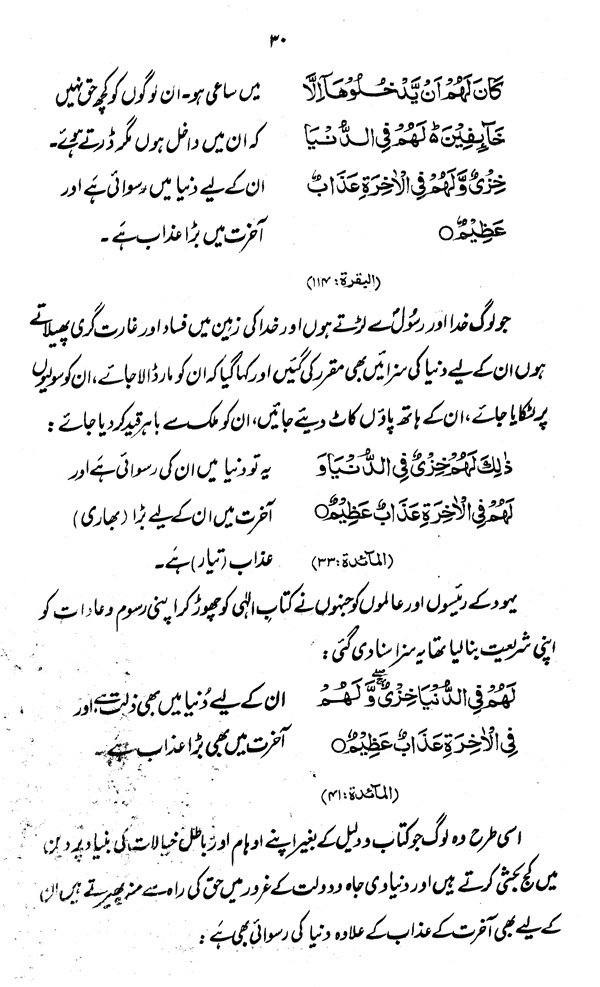 ۳۰
كَانَ لَهُمْ اَنْ يَّدْخُلُوْهَآ اِلَّا
خَآئِفِيْنَ ؕ لَهُمْ فِى الدُّنْيَا
خِزْىٌ وَّلَهُمْ فِى الْاٰخِرَةِ عَذَابٌ
عَظِيْمٌ ○
میں ساعی ہو۔ ان لوگوں کو کچھ حق نہیں
کہ ان میں داخل ہوں مگر ڈرتے ہوئے۔
ان کے لیے دنیا میں رسوائی ہے اور
آخرت میں بڑا عذاب ہے۔
(البقرة: ۱۱۴)
جو لوگ خدا اور رسولؐ سے لڑتے ہوں اور خدا کی زمین میں فساد اور غارت گری پھیلاتے
ہوں ان کے لیے دنیا کی سزائیں بھی مقرر کی گئیں اور کہا گیا کہ ان کو مار ڈالا جائے، ان کو سولیوں
پر لٹکایا جائے، ان کے ہاتھ پاؤں کاٹ دیئے جائیں، ان کو ملک سے باہر قید کر دیا جائے :
ذٰلِكَ لَهُمْ خِزْىٌ فِى الدُّنْيَا وَ
لَهُمْ فِى الْاٰخِرَةِ عَذَابٌ عَظِيْمٌ ○
(المآئدة: ۳۳)
یہ تو دنیا میں ان کی رسوائی ہے اور
آخرت میں ان کے لیے بڑا (بھاری)
عذاب (تیار) ہے۔
یہود کے رئیسوں اور عالموں کو جنہوں نے کتاب الٰہی کو چھوڑ کر اپنی رسوم و عادات کو
اپنی شریعت بنا لیا تھا یہ سزا سنا دی گئی :
لَهُمْ فِى الدُّنْيَا خِزْىٌ وَّلَهُمْ
فِى الْاٰخِرَةِ عَذَابٌ عَظِيْمٌ ○
ان کے لیے دُنیا میں بھی ذلت ہے اور
آخرت میں بھی بڑا عذاب ہے۔
(المآئدة: ۴۱)
اسی طرح وہ لوگ جو کتاب و دلیل کے بغیر اپنے اوہام اور باطل خیالات کی بنیاد پر دین
میں کج بحثی کرتے ہیں اور دنیاوی جاہ و دولت کے غرور میں حق کی راہ سے منہ پھیرتے ہیں ان
کے لیے بھی آخرت کے عذاب کے علاوہ دنیا کی رسوائی بھی ہے :